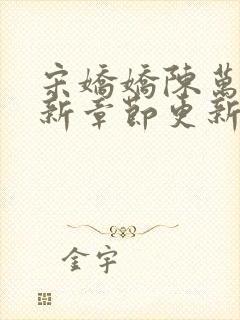 宋嬌嬌陳萬
新章節更新
金宇